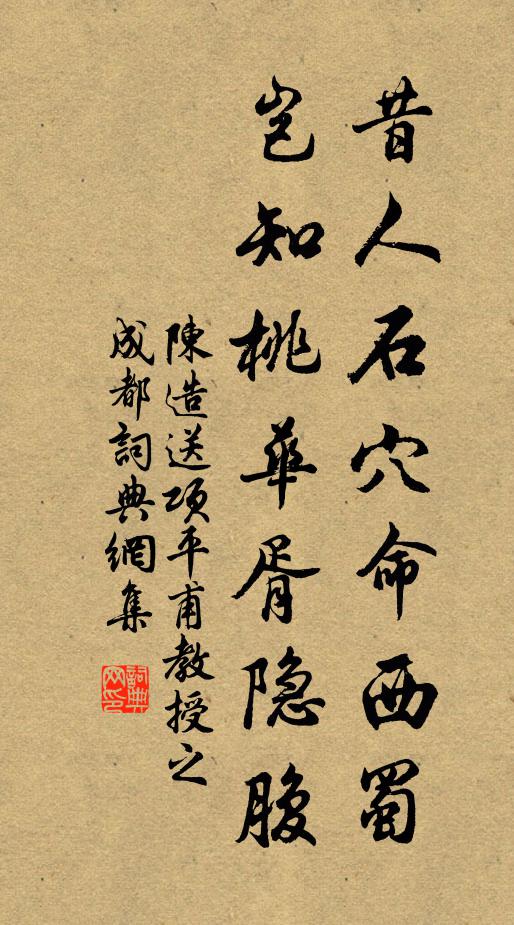 昔人石穴命西蜀
岂知桃華胥隐腹
陳造送項平甫教授之
成都詞典網集
詞典网印